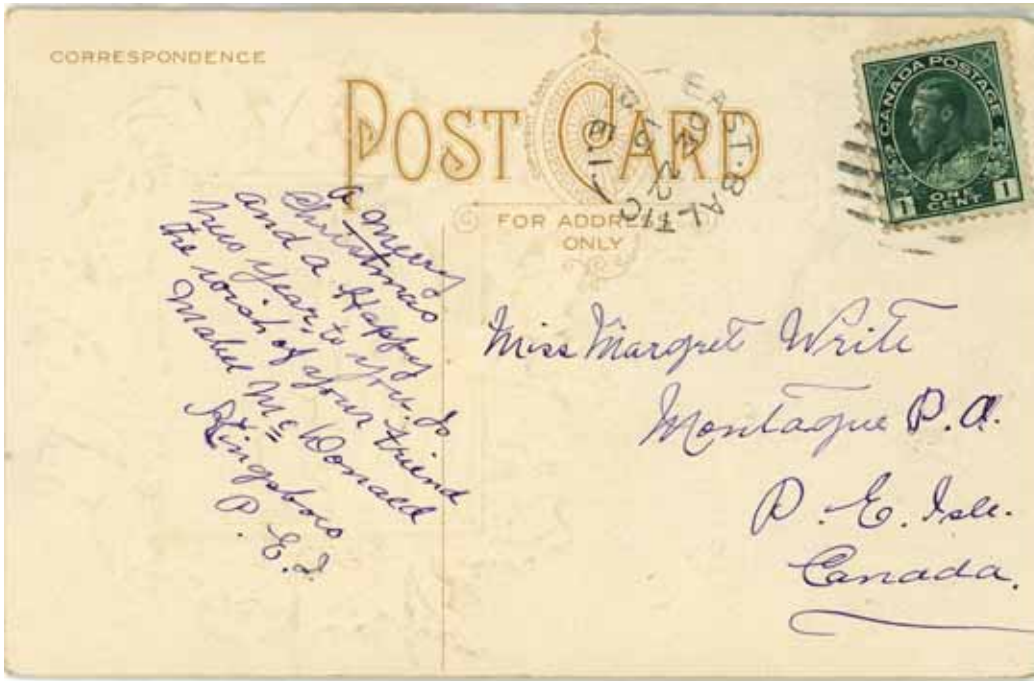 CORRESPONDENCE
POST CARD
FOR ADDRESS
ONLY
EAST·BALTIC
P.E.I.
CANADA POSTAGE
1 ONE CENT 1
A Merry
Christmas
and a Happy
New Year, to you. Is
the wish of your Friend
Mabel McDonald
Kingsboro
P. E. I.
Miss Margret Write
Montague P.O.
P. E. Isle.
Canada.